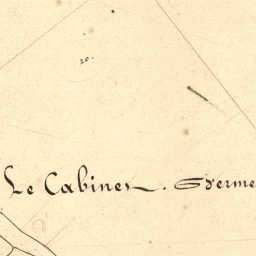 20.
Le Cabinet. Sherme